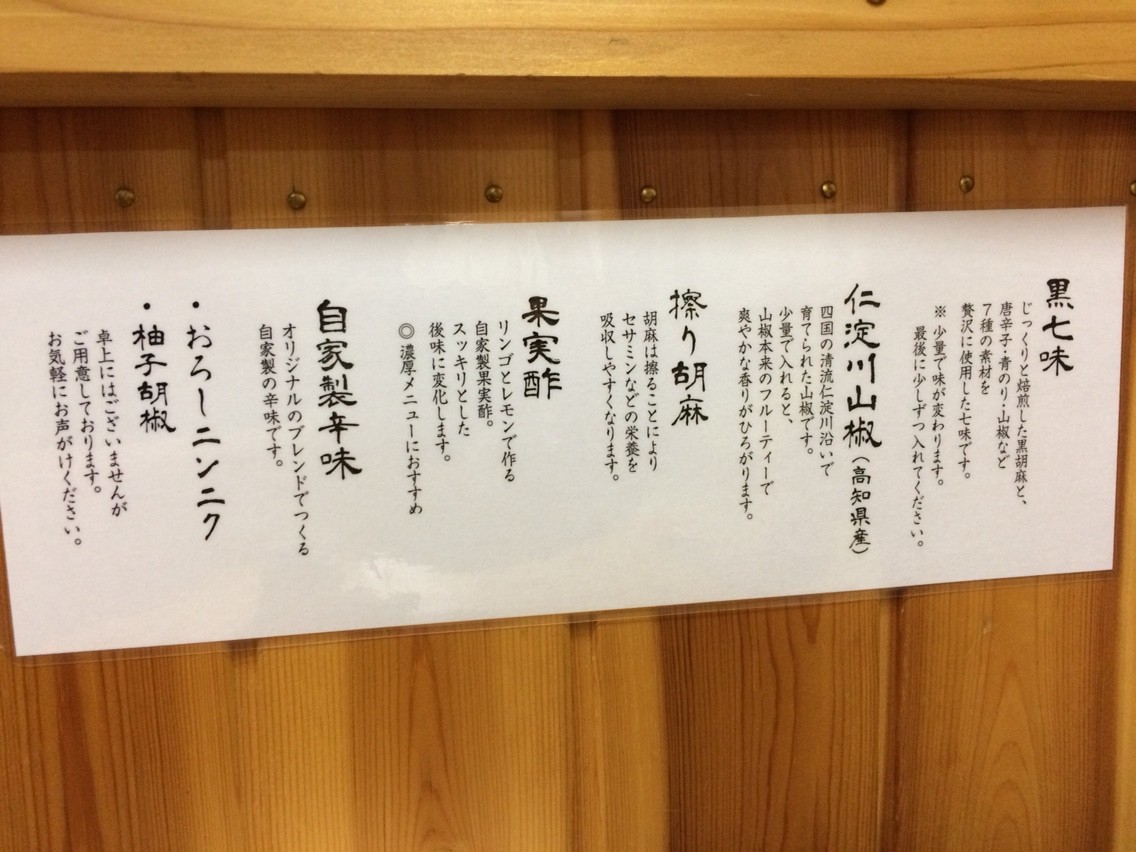 黒七味
じっくりと焙煎した黒胡麻と、
唐辛子・青のり・山椒など
7種の素材を
贅沢に使用した七味です。
※ 少量で味が変わります。
最後に少しずつ入れてください。
仁淀川山椒(高知県産)
四国の清流仁淀川沿いで
育てられた山椒です。
少量で入れると、
山椒本来のフルーティーで
爽やかな香りがひろがります。
擦り胡麻
胡麻は擦ることにより
セサミンなどの栄養を
吸収しやすくなります。
果実酢
リンゴとレモンで作る
自家製果実酢。
スッキリとした
後味に変化します。
◎ 濃厚メニューにおすすめ
自家製辛味
オリジナルのブレンドでつくる
自家製の辛味です。
・おろしニンニク
・柚子胡椒
卓上にはございませんが
ご用意しております。
お気軽にお声がけください。